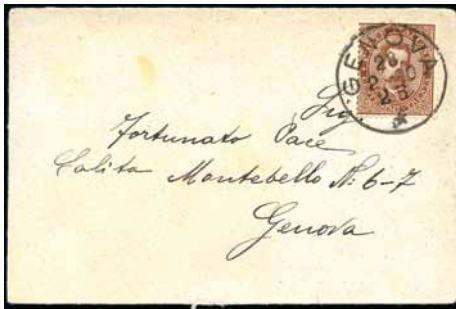 GENOVA
28
2
Sig.
Fortunato Pace
Salita Montebello N: 6-7
Genova